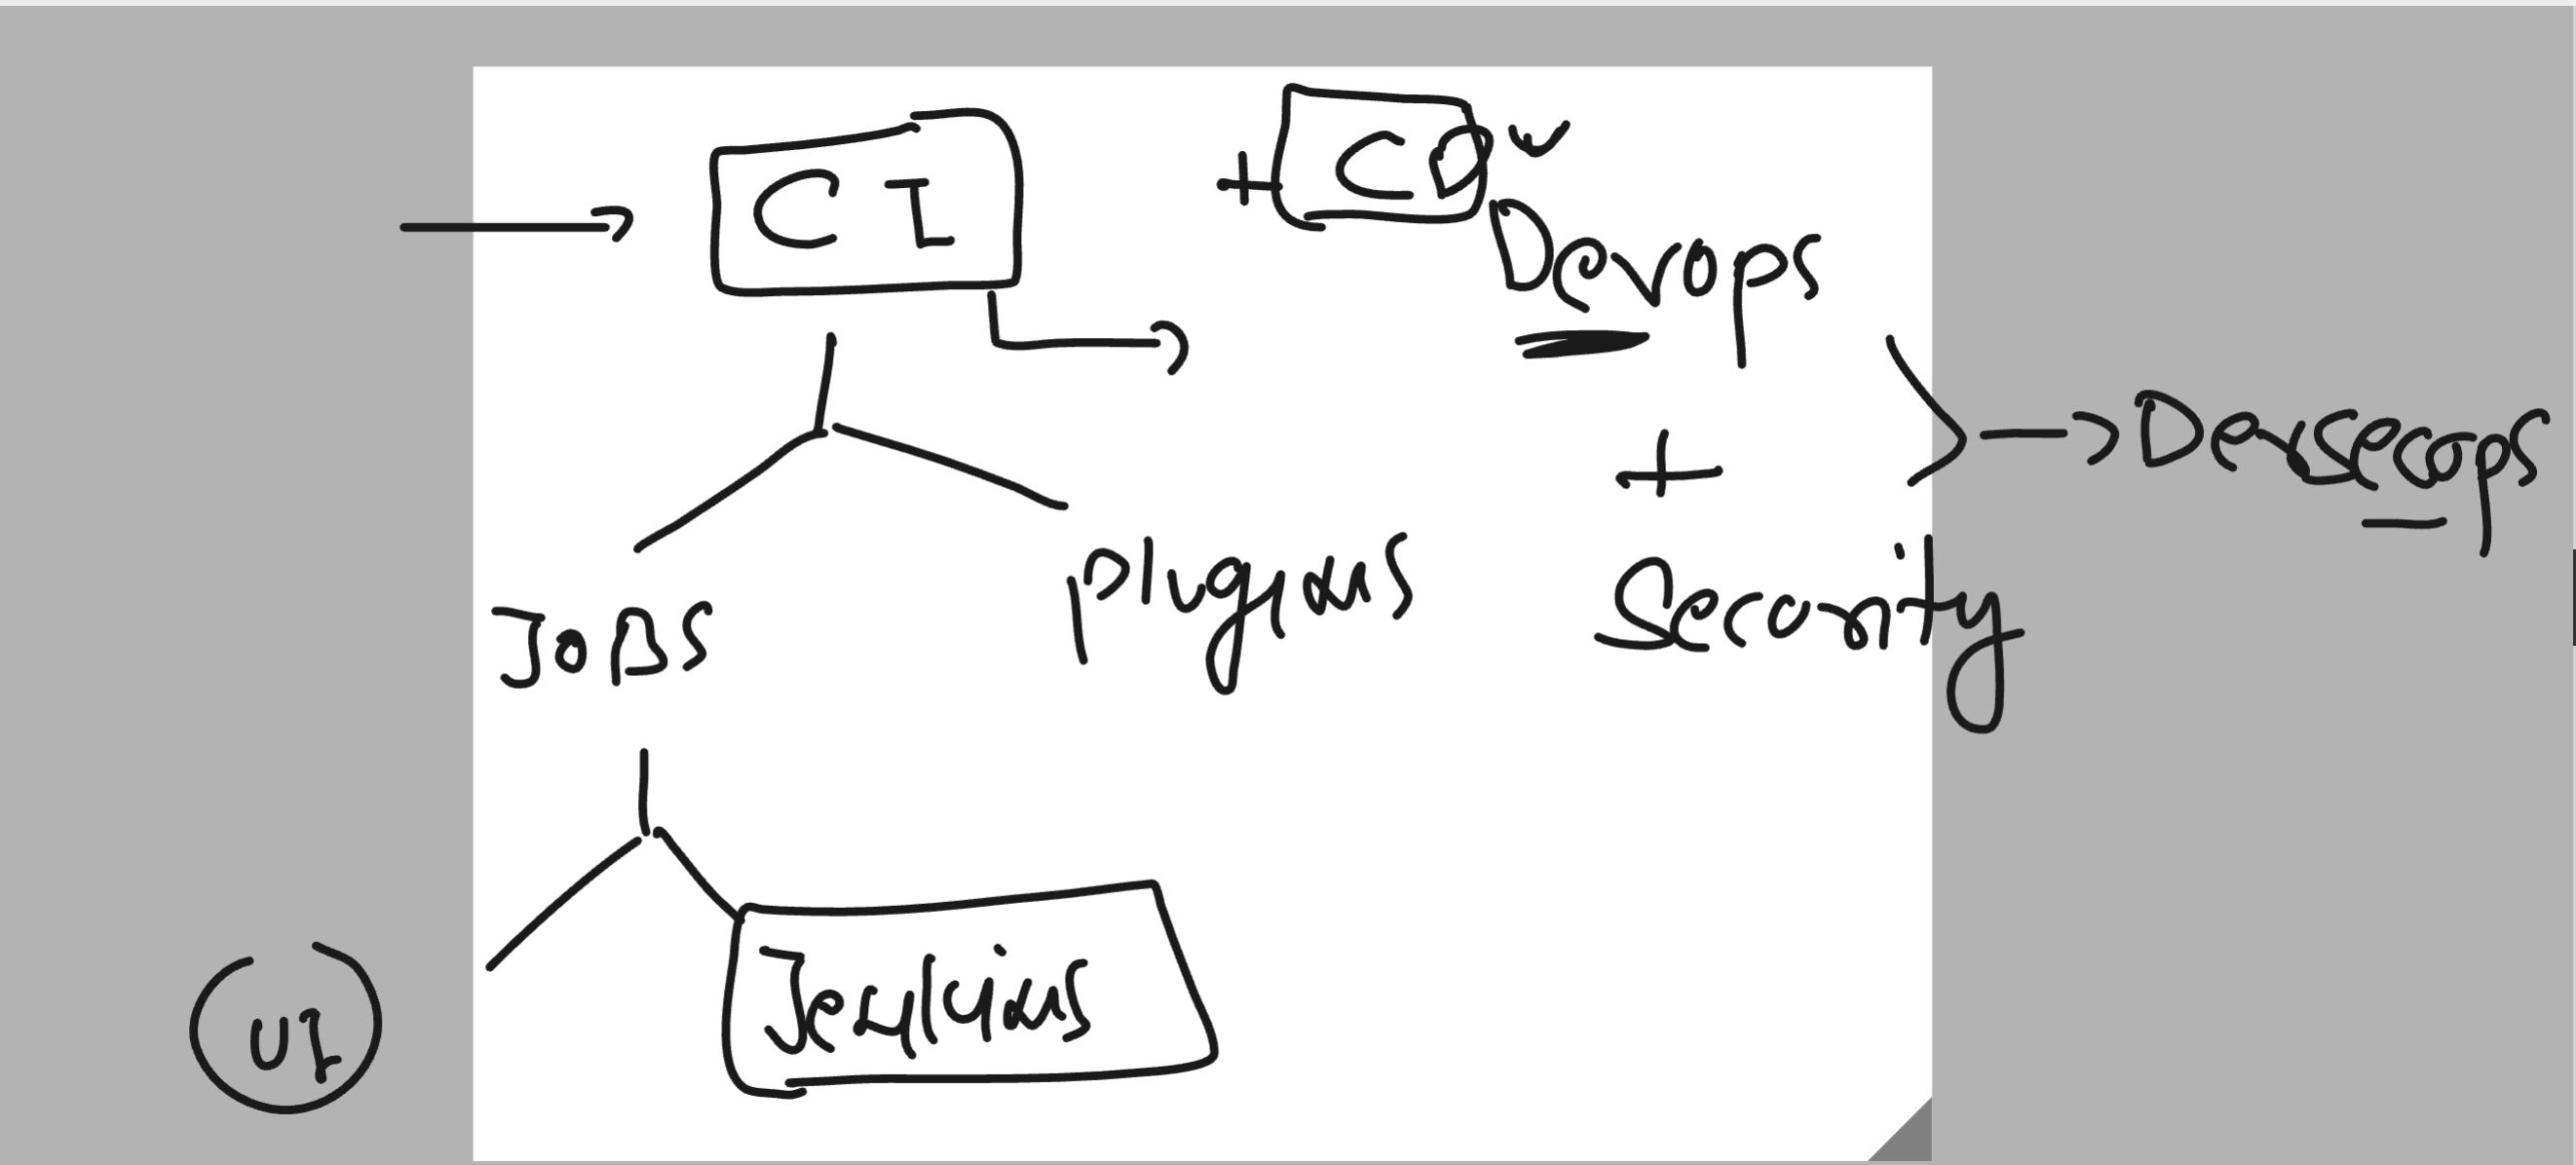 CI
+ CD
Devops
+
Security
Devsecops
JOBS
plugins
UI
Jenkins